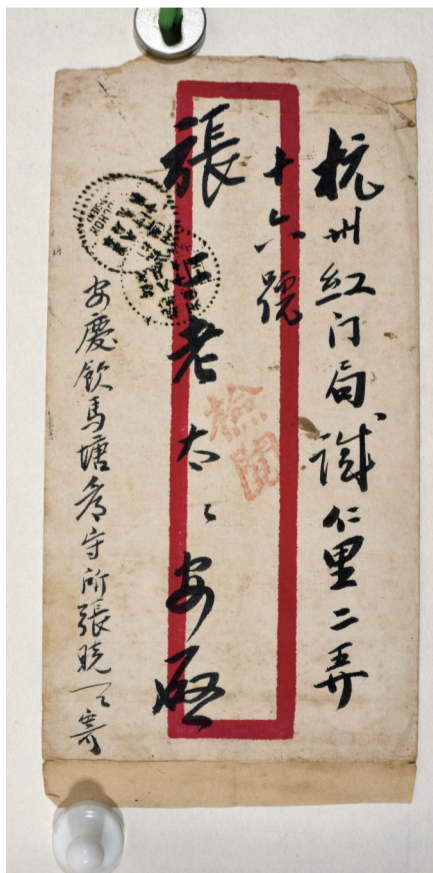 杭州紅门局誠仁里二弄
十六號
張上老太々安啟
檢閱
安慶飲馬塘看守所張曉天寄